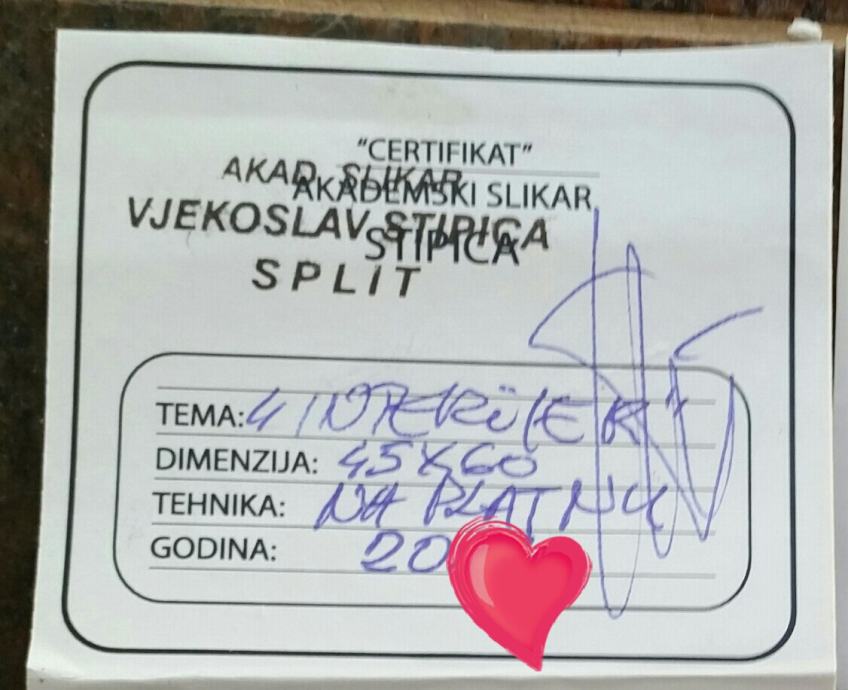 "CERTIFIKAT"
AKAD. SLIKAR
AKADEMSKI SLIKAR
VJEKOSLAV STIPICA
STIPICA
SPLIT
TEMA:
DIMENZIJA: 45X60
TEHNIKA: NA PLATNU
GODINA: 20